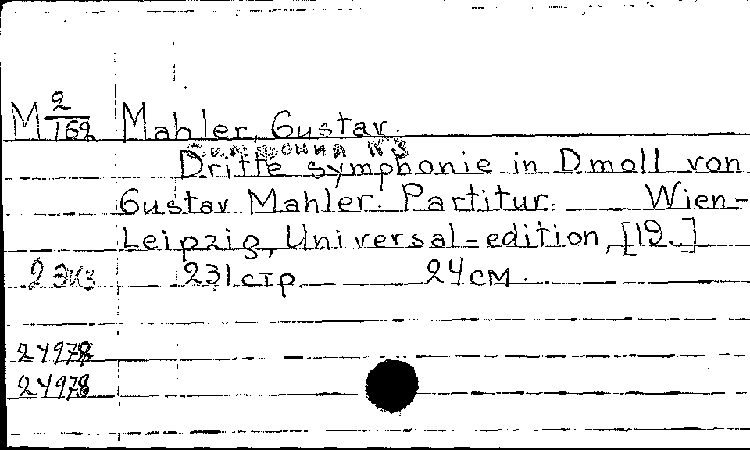 M 2/162 Mahler, Gustav.
Симфония №3
Dritte symphonie in Dmoll von
Gustav Mahler. Partitur. Wien-
Leipzig, Universal-edition, [19..]
2 экз 231стр. 24см.
24978
24978